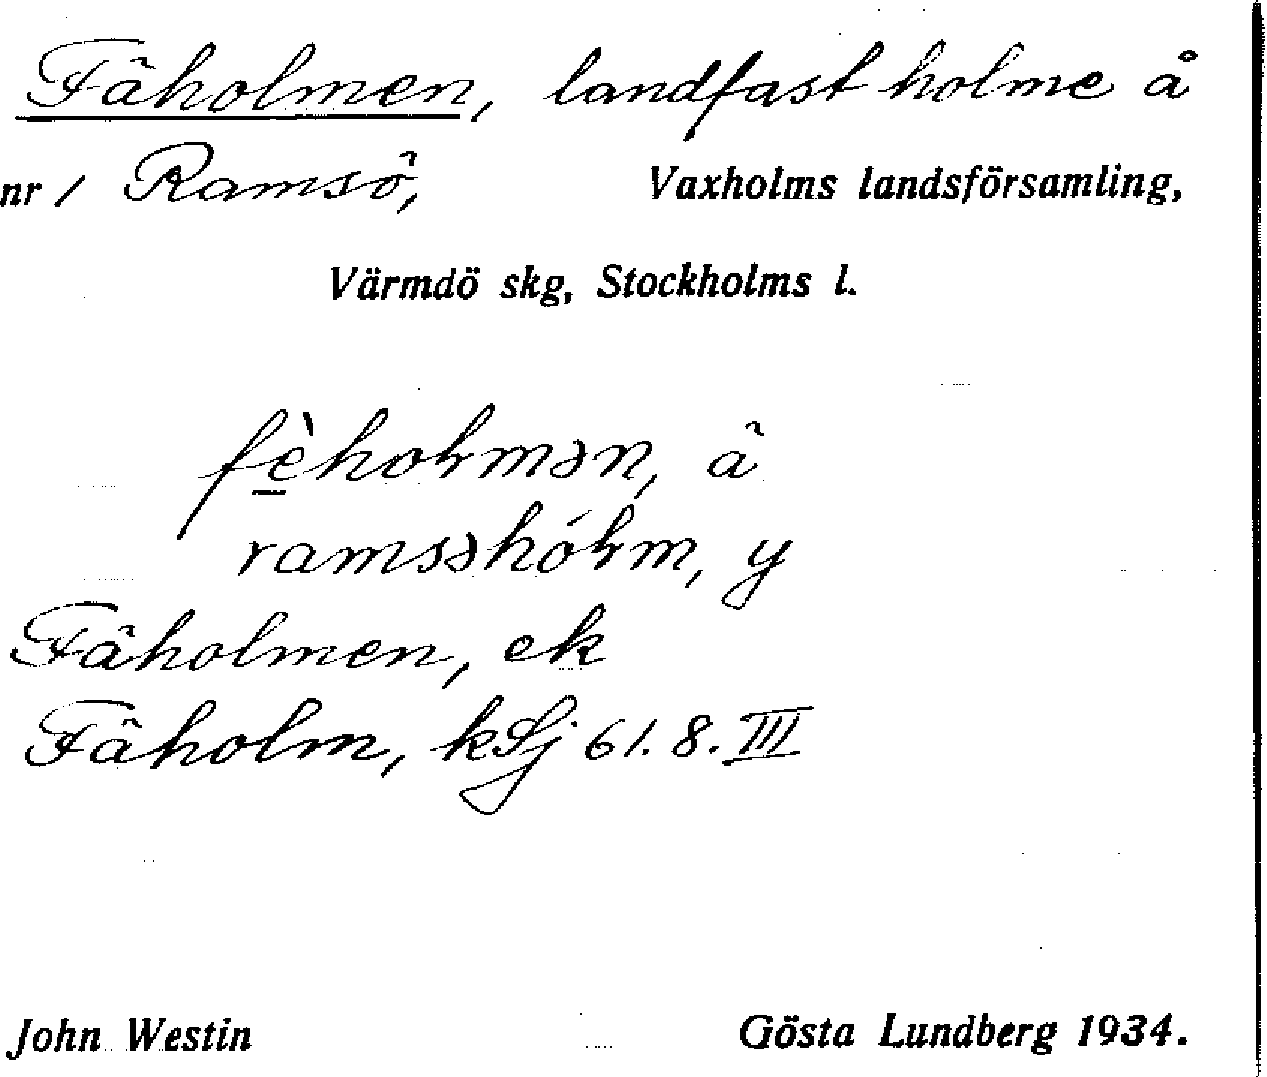 Fäholmen, landfast holme å
nr 1 Ramsö, Vaxholms landsförsamling,
Värmdö skg, Stockholms l.
fὲ̱holmən, ä
ramsəhólm, y
Fäholmen, ek
Fäholm, kSj 61. 8. III
John Westin Gösta Lundberg 1934.